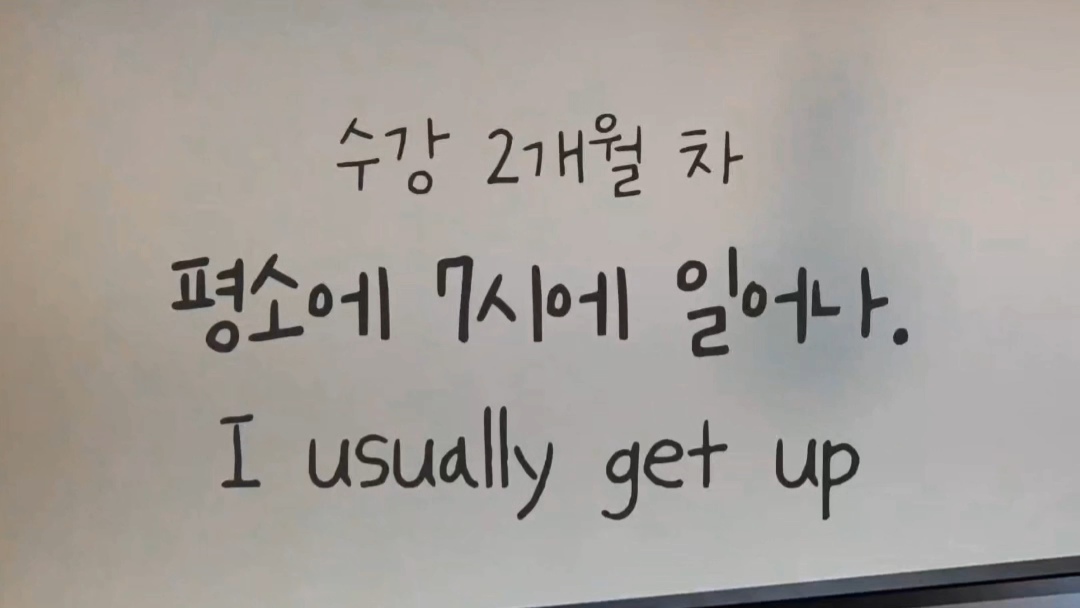 수강 2개월 차
평소에 7시에 일어나.
I usually get up